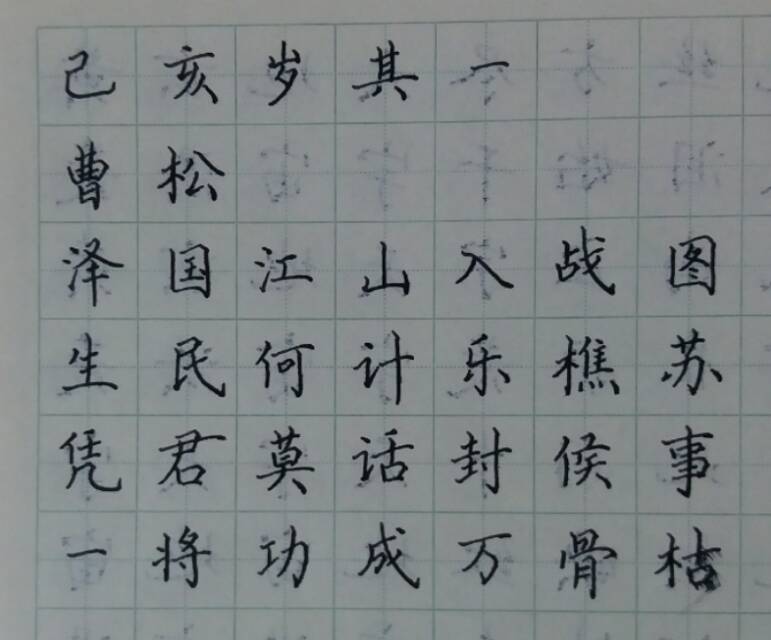 己亥岁其一
曹松
泽国江山入战图
生民何计乐樵苏
凭君莫话封侯事
一将功成万骨枯